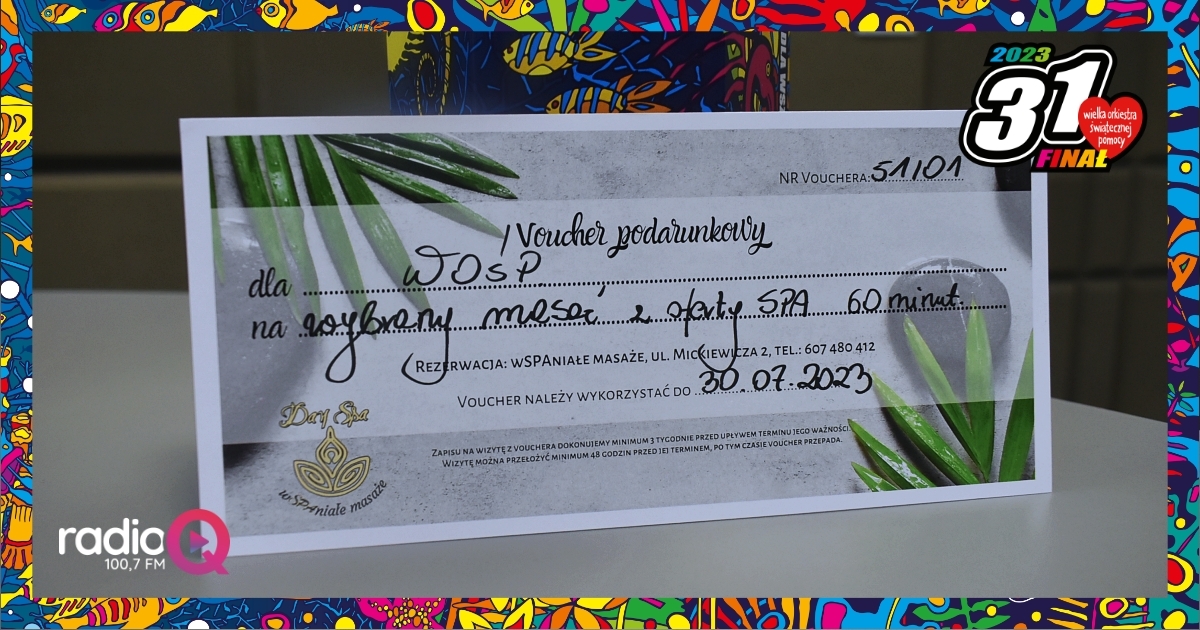 2023
31
FINAŁ
wielka orkiestra
świątecznej
pomocy
NR VOUCHERA: 51/01
Voucher podarunkowy
dla WOŚP
na wybrany masaż z oferty SPA 60 minut.
REZERWACJA: WSPANIAŁE MASAŻE, UL. MICKIEWICZA 2, TEL.: 607 480 412
VOUCHER NALEŻY WYKORZYSTAĆ DO 30.07.2023
ZAPISU NA WIZYTĘ Z VOUCHERA DOKONUJEMY MINIMUM 3 TYGODNIE PRZED UPŁYWEM TERMINU JEGO WAŻNOŚCI.
WIZYTĘ MOŻNA PRZEŁOŻYĆ MINIMUM 48 GODZIN PRZED JEJ TERMINEM, PO TYM CZASIE VOUCHER PRZEPADA.
Day Spa
wSPAniałe masaże
radio Q
100,7 FM